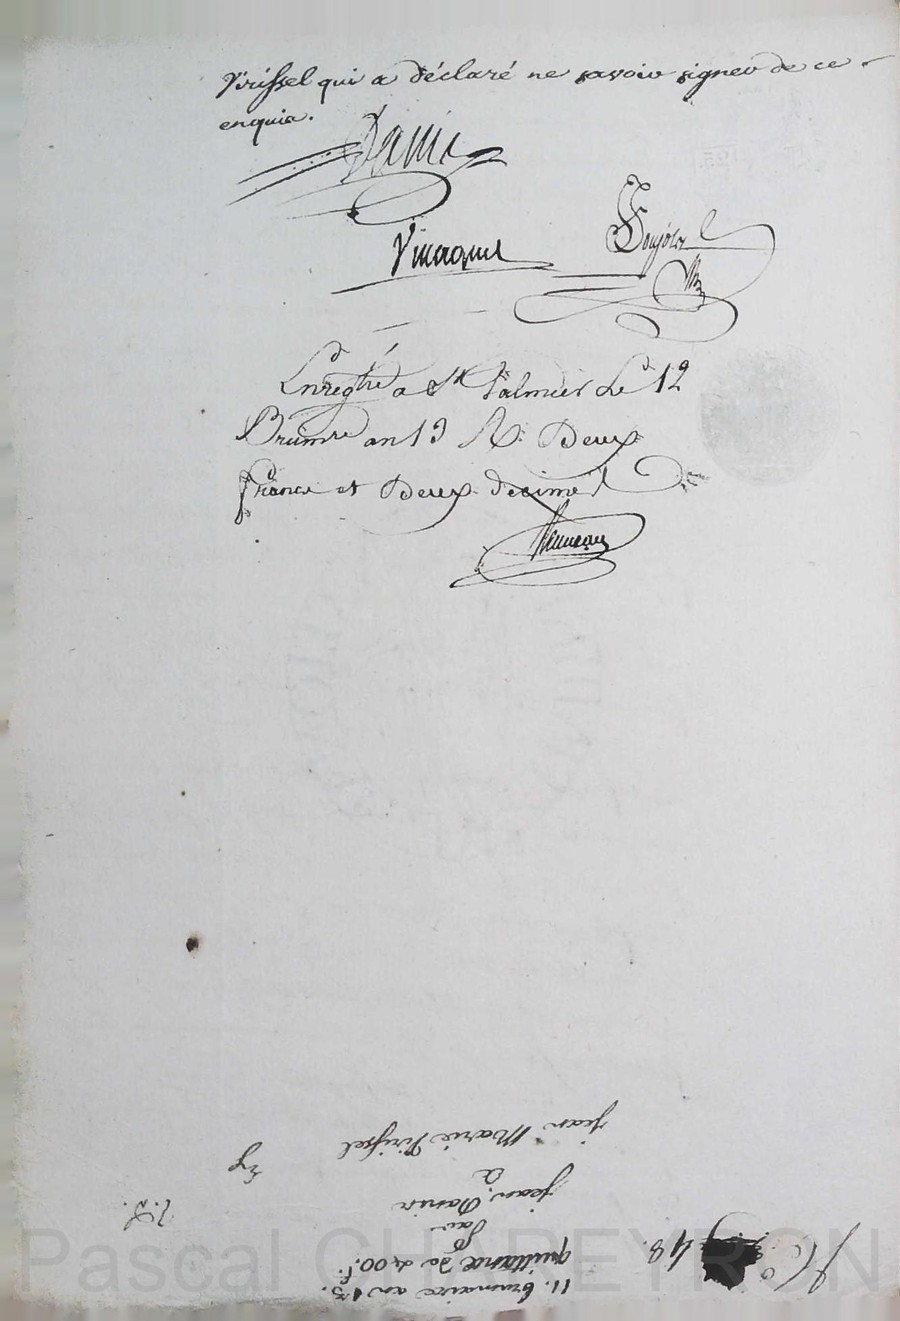 Virissel qui a déclaré ne savoir signer de ce
enquis.
Danis
Vincent
Enregtré a St Galmier Le 12
Brumre an 13 R. Deux
francs et Deux decimes
11. brumaire an 13.
quittance de 400 f.
par
jean Danis
a
jean Marie Virissel
N° 48.
Pascal CHAPEYRON